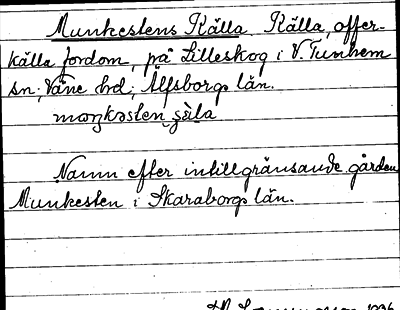 Munkestens Källa. Källa, offer-
källa fordom, på Lilleskog i V. Tunhem
sn; Väne hd; Älfsborgs län.
Namn efter intillgränsande gården
Munkesten i Skaraborgs län.
1936